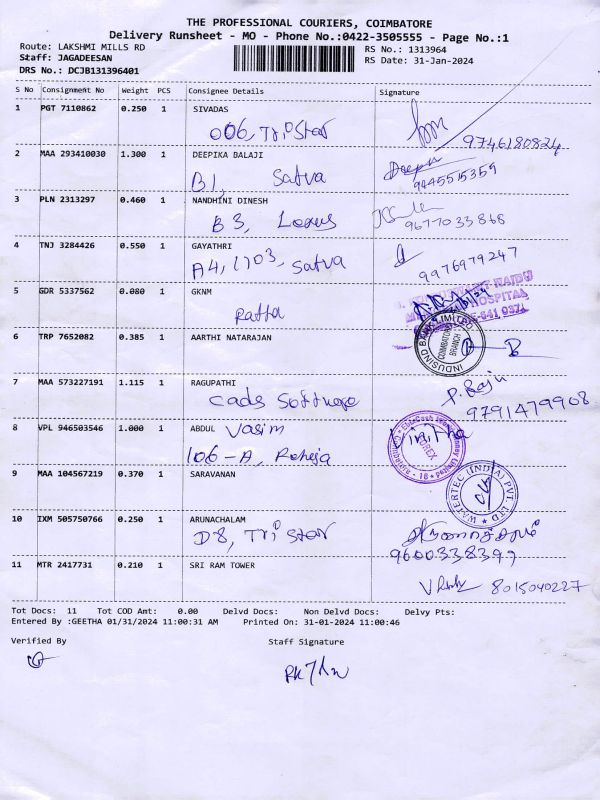 THE PROFESSIONAL COURIERS, COIMBATORE
Delivery Runsheet - MO - Phone No.:0422-3505555 - Page No.:1
Route: LAKSHMI MILLS RD RS No.: 1313964
Staff: JAGADEESAN RS Date: 31-Jan-2024
DRS No.: DCJB131396401
S No Consignment No Weight PCS Consignee Details Signature
1 PGT 7110862 0.250 1 SIVADAS
006, Tristar 9746180824
2 MAA 293410030 1.300 1 DEEPIKA BALAJI Deepa
B1, Satva 9445515359
3 PLN 2313297 0.460 1 NANDHINI DINESH
B3, Lexus 9677033868
4 TNJ 3284426 0.550 1 GAYATHRI
A4, 1703, Satva 9976979247
5 GDR 5337562 0.080 1 GKNM
HOSPITAL
641 037
6 TRP 7652082 0.385 1 AARTHI NATARAJAN
INDUSIND BANK LIMITED
COIMBATORE BRANCH
B
7 MAA 573227191 1.115 1 RAGUPATHI P. Raju
Cads Software 9791479908
8 VPL 946503546 1.000 1 ABDUL Vasim
106-A, Raheja
FOREX
9 MAA 104567219 0.370 1 SARAVANAN
WATERTEC (INDIA) PVT. LTD
10 IXM 505750766 0.250 1 ARUNACHALAM அருணாச்சலம்
D8, Tristar 9600338399
11 MTR 2417731 0.210 1 SRI RAM TOWER
8015040227
Tot Docs: 11 Tot COD Amt: 0.00 Delvd Docs: Non Delvd Docs: Delvy Pts:
Entered By :GEETHA 01/31/2024 11:00:31 AM Printed On: 31-01-2024 11:00:46
Verified By Staff Signature